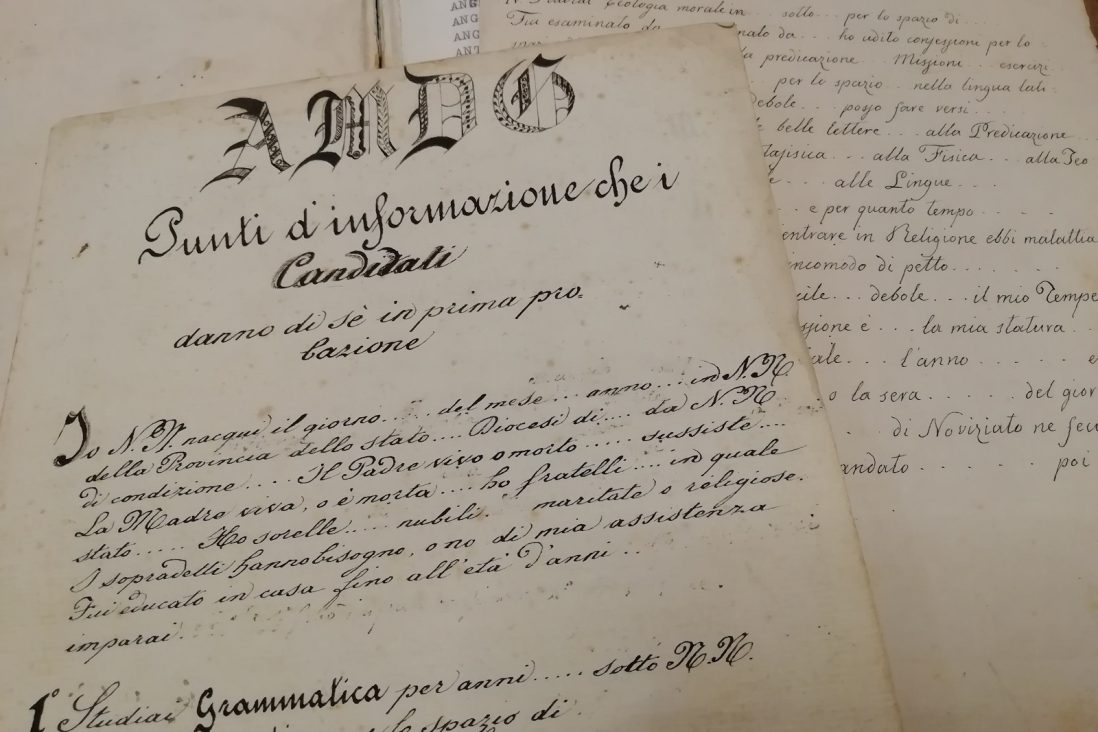 AMDG
Punti d'informazione che i
Candidati
danno di sè in prima pro-
bazione
Io N.N. nacqui il giorno..... del mese... anno... in N.N.
della Provincia dello stato.... Diocesi di.... da N.N.
di condizione..... Il Padre vivo o morto..... sussiste....
La Madre viva, o è morta.... ho fratelli.... in quale
stato...... Ho sorelle..... nubili. maritate o religiose.
I sopradetti hanno bisogno, o no di mia assistenza
Fui educato in casa fino all'età d'anni...
imparai.
1° Studiai Grammatica per anni..... sotto N.N.
lo spazio di
ANG
ANG
ANG
ANT
Teologia morale in... sotto... per lo spazio di....
Fui esaminato da
nato da... ho udito confessioni per lo
predicazione... Missioni... esercizi..
per lo spazio.. nella lingua lati-
debole.... posso fare versi...
belle lettere... alla Predicazione
alla Fisica... alla Teo
alle Lingue....
e per quanto tempo.....
entrare in Religione ebbi malattia
incomodo di petto.......
debole... il mio Tempe
è... la mia statura...
l'anno..... e
o la sera..... del gior
di Noviziato ne feci
andato...... poi